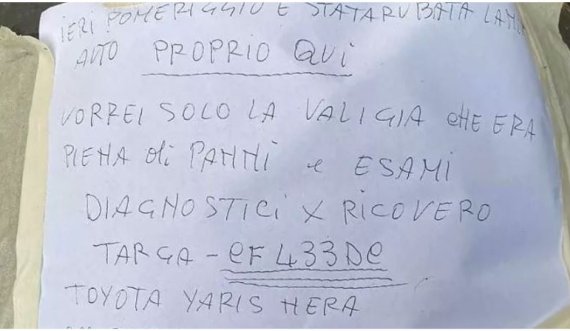 IERI POMERIGGIO E STATA RUBATA LA MIA
AUTO PROPRIO QUI
VORREI SOLO LA VALIGIA CHE ERA
PIENA di PANNI e ESAMI
DIAGNOSTICI X RICOVERO
TARGA - EF 433DE
TOYOTA YARIS NERA